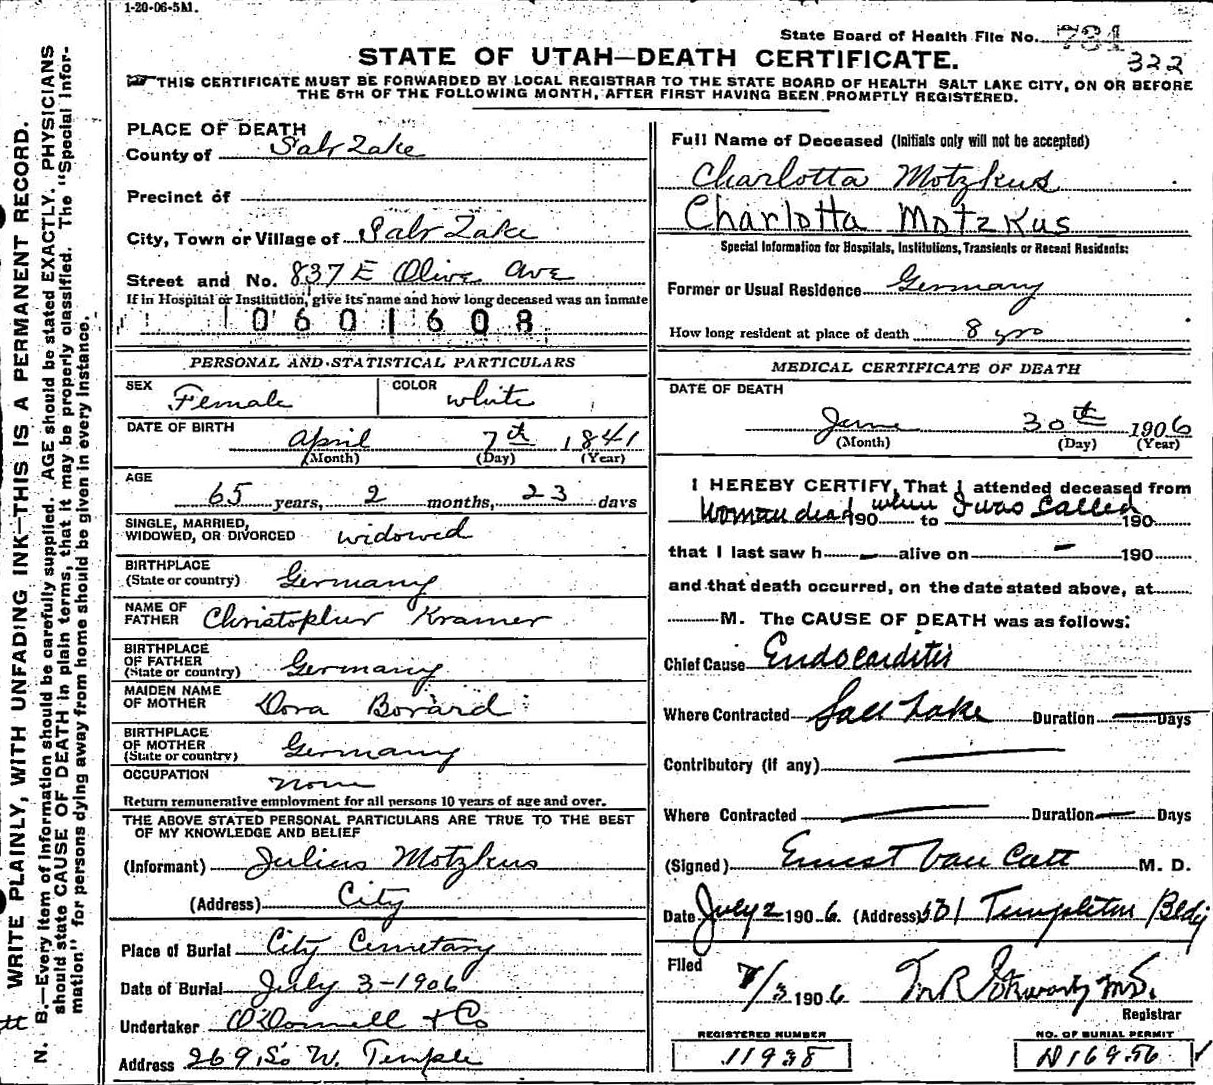 1-20-06-5M.
State Board of Health File No. 731
322
STATE OF UTAH—DEATH CERTIFICATE.
THIS CERTIFICATE MUST BE FORWARDED BY LOCAL REGISTRAR TO THE STATE BOARD OF HEALTH SALT LAKE CITY, ON OR BEFORE
THE 5TH OF THE FOLLOWING MONTH, AFTER FIRST HAVING BEEN PROMPTLY REGISTERED.
WRITE PLAINLY, WITH UNFADING INK—THIS IS A PERMANENT RECORD.
N. B.—Every item of information should be carefully supplied. AGE should be stated EXACTLY. PHYSICIANS
should state CAUSE OF DEATH in plain terms, that it may be properly classified. The "Special Infor-
mation" for persons dying away from home should be given in every instance.
PLACE OF DEATH
County of Salt Lake
Precinct of
City, Town or Village of Salt Lake
Street and No. 837 E Olive Ave
If in Hospital or Institution, give its name and how long deceased was an inmate
0601608
PERSONAL AND STATISTICAL PARTICULARS
SEX Female COLOR white
DATE OF BIRTH
April 7th 1841
(Month) (Day) (Year)
AGE
65 years, 2 months, 23 days
SINGLE, MARRIED,
WIDOWED, OR DIVORCED widowed
BIRTHPLACE
(State or country) Germany
NAME OF
FATHER Christopher Kramer
BIRTHPLACE
OF FATHER
(State or country) Germany
MAIDEN NAME
OF MOTHER Dora Borard
BIRTHPLACE
OF MOTHER
(State or country) Germany
OCCUPATION None
Return remunerative employment for all persons 10 years of age and over.
THE ABOVE STATED PERSONAL PARTICULARS ARE TRUE TO THE BEST
OF MY KNOWLEDGE AND BELIEF
(Informant) Julius Motzkus
(Address) City
Place of Burial City Cemetary
Date of Burial July 3-1906
Undertaker O'Donnell & Co
Address 269 So W. Temple
Full Name of Deceased (Initials only will not be accepted)
Charlotta Motzkus
Charlotta Motzkus
Special Information for Hospitals, Institutions, Transients or Recent Residents:
Former or Usual Residence Germany
How long resident at place of death 8 yrs
MEDICAL CERTIFICATE OF DEATH
DATE OF DEATH
June 30th 1906
(Month) (Day) (Year)
I HEREBY CERTIFY, That I attended deceased from
Woman dead 190 when to I was Called 190
that I last saw h — alive on — 190
and that death occurred, on the date stated above, at
M. The CAUSE OF DEATH was as follows:
Chief Cause Endocarditis
Where Contracted Salt Lake Duration — Days
Contributory (if any) —
Where Contracted — Duration — Days
(Signed) Ernest Van Cott M. D.
Date July 2 1906. (Address) 531 Templeton Bldg
Filed 7/3 1906
Registrar
REGISTERED NUMBER NO. OF BURIAL PERMIT
11938